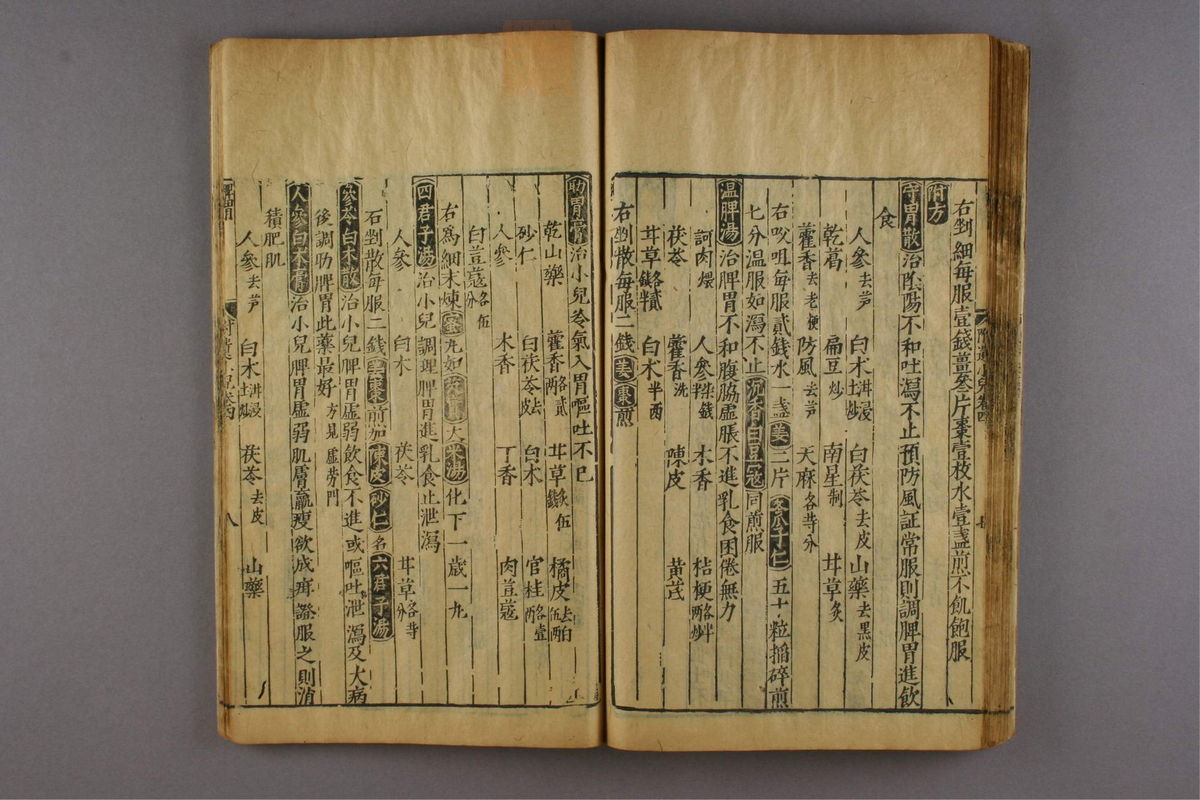 右剉細每服壹錢薑叄片棗壹枚水壹盞煎不飢飽服
附方
守胃散治陰陽不和吐瀉不止預防風証常服則調脾胃進飲
食
人參去芦 白术泔浸土炒 白茯苓去皮 山藥去黑皮
乾葛 扁豆炒 南星制 甘草炙
藿香去老梗 防風去芦 天麻各等分
右㕮咀每服貳錢水一盞姜三片冬瓜子仁五十粒搥碎煎
七分温服如瀉不止沉香白豆寇同煎服
温脾湯治脾胃不和腹脇虛脹不進乳食困倦無力
訶肉煨 人參 木香 桔梗
茯苓 藿香洗 陳皮 黄芪
甘草 白术半兩
右剉散每服二錢姜棗煎
助胃膏治小兒冷氣入胃嘔吐不已
乾山藥 藿香 甘草 橘皮
砂仁 白茯苓 白术 官桂
人參 木香 丁香 肉荳蔲
白荳蔲
右爲細末煉蜜丸如 大米湯化下一歲一丸
四君子湯治小兒調理脾胃進乳食止泄瀉
人參 白术 茯苓 甘草各等分
石剉散每服二錢姜棗煎加陳皮砂仁名六君子湯
參苓白术散治小兒脾胃虛弱飲食不進或嘔吐泄瀉及大病
後調助脾胃此藥最好方見虛勞門
人參白术膏治小兒脾胃虛弱肌膚羸瘦欲成疳證服之則消
積肥肌
人參去芦 白术泔浸土炒 茯苓去皮 山藥
八